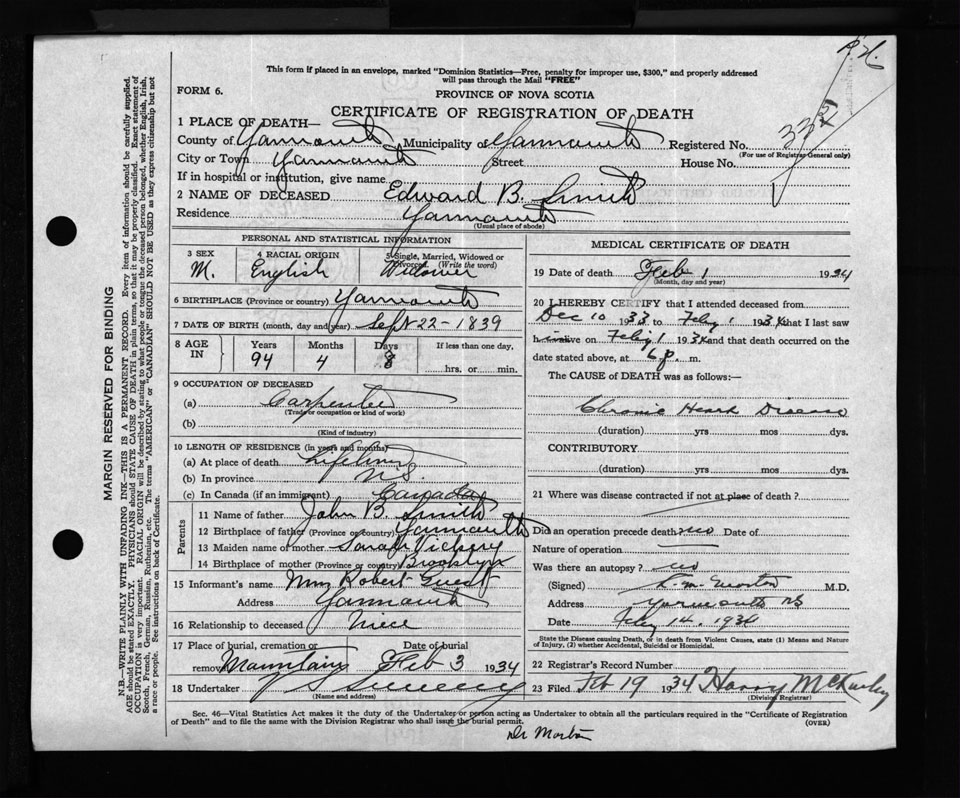 This form if placed in an envelope, marked "Dominion Statistics—Free, penalty for improper use, $300," and properly addressed
will pass through the Mail "FREE"
FORM 6.
PROVINCE OF NOVA SCOTIA
CERTIFICATE OF REGISTRATION OF DEATH
1 PLACE OF DEATH—
County of Yarmouth Municipality of Yarmouth Registered No.
(For use of Registrar General only)
City or Town Yarmouth Street House No.
If in hospital or institution, give name
2 NAME OF DECEASED Edward B. Smith
Residence Yarmouth
(Usual place of abode)
PERSONAL AND STATISTICAL INFORMATION
3 SEX 4 RACIAL ORIGIN 5 Single, Married, Widowed or Divorced. (Write the word)
M. English Widower
6 BIRTHPLACE (Province or country) Yarmouth
7 DATE OF BIRTH (month, day and year) Sept 22-1839
8 AGE IN Years Months Days If less than one day,
94 4 8 hrs. or min.
9 OCCUPATION OF DECEASED
(a) Carpenter
(Trade or occupation or kind of work)
(b)
(Kind of industry)
10 LENGTH OF RESIDENCE (in years and months)
(a) At place of death Lifetime
(b) In province N.S.
(c) In Canada (if an immigrant) Canada
Parents
11 Name of father John B. Smith
12 Birthplace of father (Province or country) Yarmouth
13 Maiden name of mother Sarah Vickery
14 Birthplace of mother (Province or country) Brooklyn
15 Informant's name Mrs Robert Guest
Address Yarmouth
16 Relationship to deceased Niece
17 Place of burial, cremation or removal Date of burial
Mountain Feb 3 1934
18 Undertaker V S Sweeny
(Name and address)
MEDICAL CERTIFICATE OF DEATH
19 Date of death Feb 1 1934
(Month, day and year)
20 I HEREBY CERTIFY that I attended deceased from
Dec 10 1933 to Feby 1 1934 that I last saw
h alive on Feby 1 1934 and that death occurred on the
date stated above, at 6 p. m.
The CAUSE of DEATH was as follows:
Chronic Heart Disease
(duration) yrs mos dys.
CONTRIBUTORY
(duration) yrs mos dys.
21 Where was disease contracted if not at place of death?
Did an operation precede death? no Date of
Nature of operation
Was there an autopsy? no
(Signed) Morton M.D.
Address Yarmouth NS
Date Feby 14. 1934
State the Disease causing Death, or in death from Violent Causes, state (1) Means and Nature
of Injury, (2) whether Accidental, Suicidal or Homicidal.
22 Registrar's Record Number
23 Filed Feb 19 1934 Harry
(Division Registrar)
Sec. 46—Vital Statistics Act makes it the duty of the Undertaker or person acting as Undertaker to obtain all the particulars required in the "Certificate of Registration
of Death" and to file the same with the Division Registrar who shall issue the burial permit.
(OVER)
Dr Morton
MARGIN RESERVED FOR BINDING
N.B.—WRITE PLAINLY WITH UNFADING INK—THIS IS A PERMANENT RECORD. Every item of information should be carefully supplied.
AGE should be stated EXACTLY. PHYSICIANS should STATE CAUSE OF DEATH in plain terms, so that it may be properly classified. Exact statement of
OCCUPATION is very important. RACIAL ORIGIN will be described by stating to what people or tongue the deceased person belonged, whether English, Irish,
Scotch, French, German, Russian, Ruthenian, etc. The terms "AMERICAN" or "CANADIAN" SHOULD NOT BE USED as they express citizenship but not
a race or people. See instructions on back of Certificate.